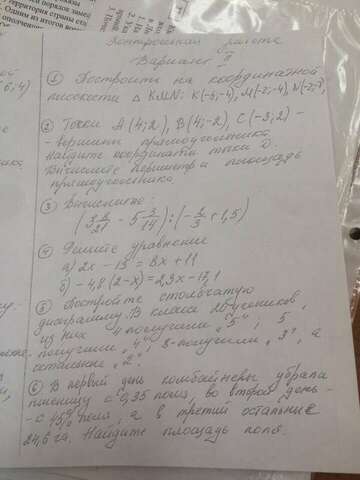 Контрольная работа
Вариант II
① Постройте на координатной
плоскости △ KMN; K(-3;-4), M(-2;-4), N(-2;
② Точки A(4;2), B(4;-2) C(-3;2) -
- вершины прямоугольника.
Найдите координаты точки D.
Вычислите периметр и площадь
прямоугольника.
③ Вычислите:
- 5 3/14) : (- 2/3 + 1,5)
④ Решите уравнение
а) 2x - 13 = 8x + 11
б) - 4,8 (2-x) = 2,3x - 17,1
⑤ Постройте столбчатую
диаграмму. В классе 26 учеников,
из них 4 получили „5", 5
получили „4", 8 - получили „3", а
остальные „2".
⑥ В первый день комбайнёры убрали
пшеницу с 0,35 поля, во второй день -
- с 45% поля, а в третий остальные
24,6 га. Найдите площадь поля.